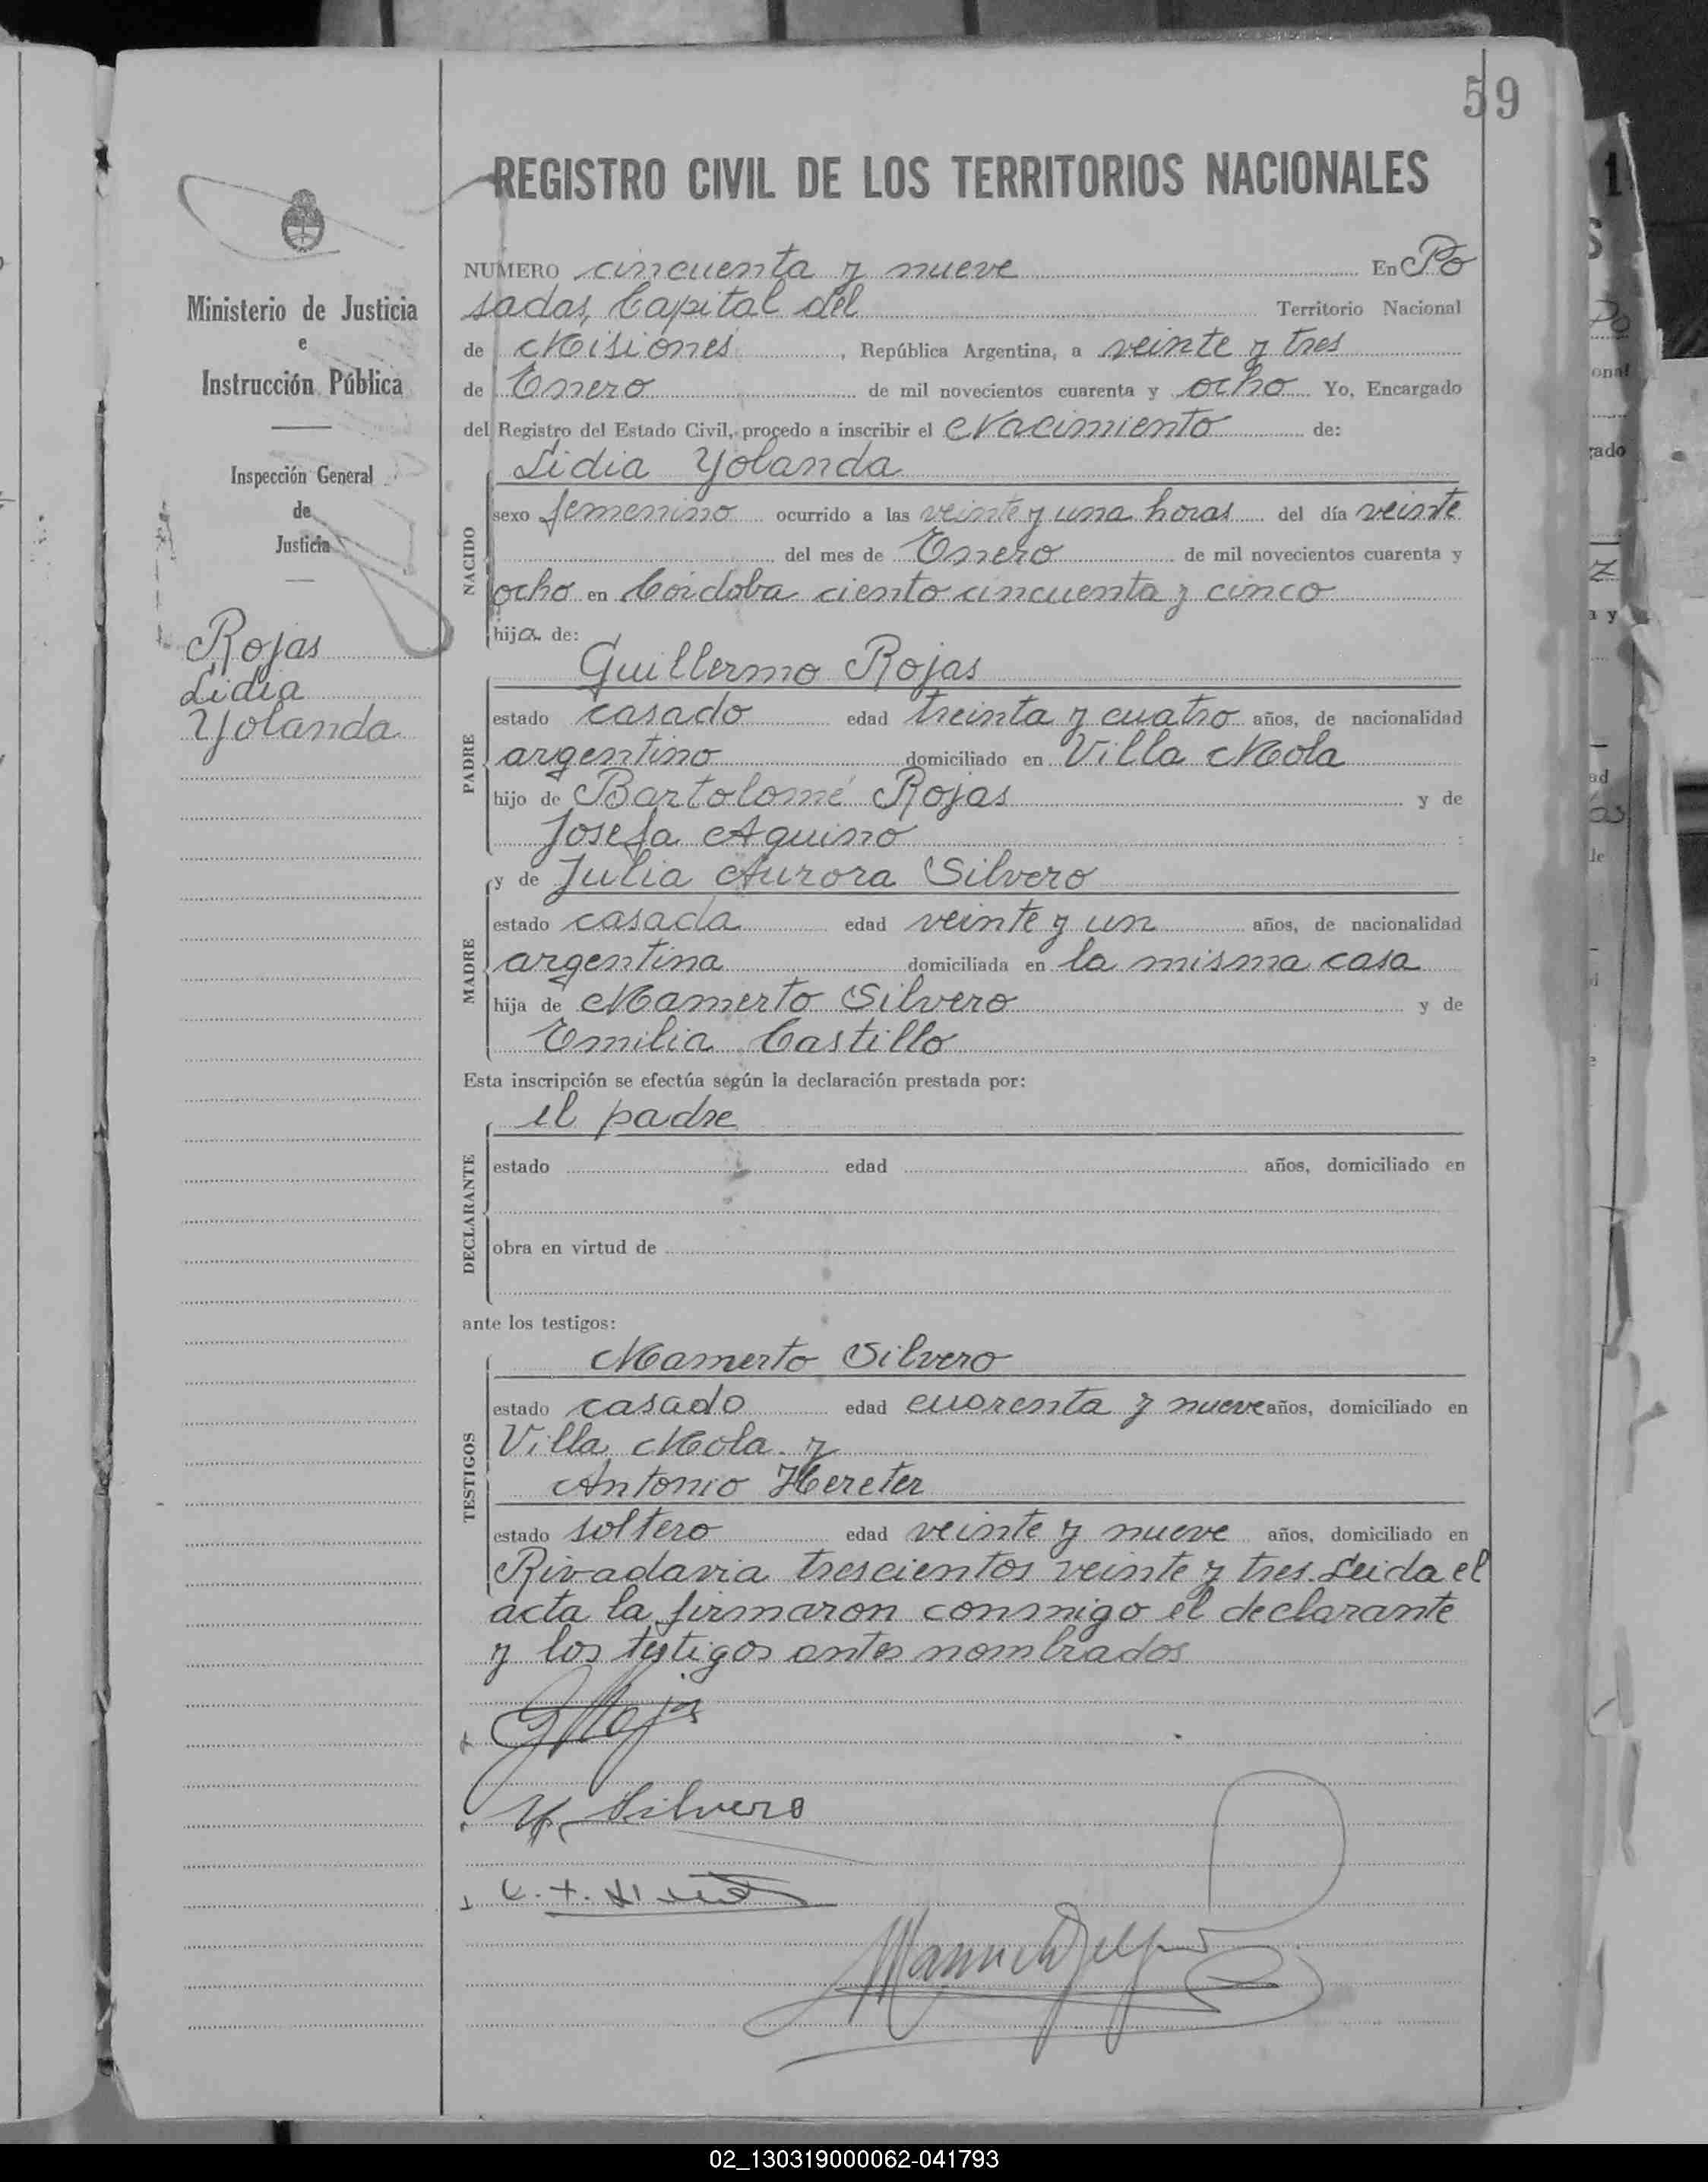 59
REGISTRO CIVIL DE LOS TERRITORIOS NACIONALES
Ministerio de Justicia
e
Instrucción Pública
Inspección General
de
Justicia
Rojas
Lidia
Yolanda
NUMERO cincuenta y nueve En Po
sadas, Capital del Territorio Nacional
de Misiones, República Argentina, a veinte y tres
de Enero de mil novecientos cuarenta y ocho Yo, Encargado
del Registro del Estado Civil, procedo a inscribir el Nacimiento de:
NACIDO
Lidia Yolanda
sexo femenino ocurrido a las veinte y una horas del día veinte
del mes de Enero de mil novecientos cuarenta y
ocho en Córdoba ciento cincuenta y cinco
hija de:
PADRE
Guillermo Rojas
estado casado edad treinta y cuatro años, de nacionalidad
argentino domiciliado en Villa Mola
hijo de Bartolomé Rojas y de
Josefa Aquino
MADRE
y de Julia Aurora Silvero
estado casada edad veinte y un años, de nacionalidad
argentina domiciliada en la misma casa
hija de Mamerto Silvero y de
Emilia Castillo
Esta inscripción se efectúa según la declaración prestada por:
DECLARANTE
el padre
estado edad años, domiciliado en
obra en virtud de
ante los testigos:
TESTIGOS
Mamerto Silvero
estado casado edad cuarenta y nueve años, domiciliado en
Villa Mola y
Antonio Hereter
estado soltero edad veinte y nueve años, domiciliado en
Rivadavia trescientos veinte y tres. Leida el
acta la firmaron conmigo el declarante
y los testigos antes nombrados
G Rojas
M. Silvero
02_130319000062-041793